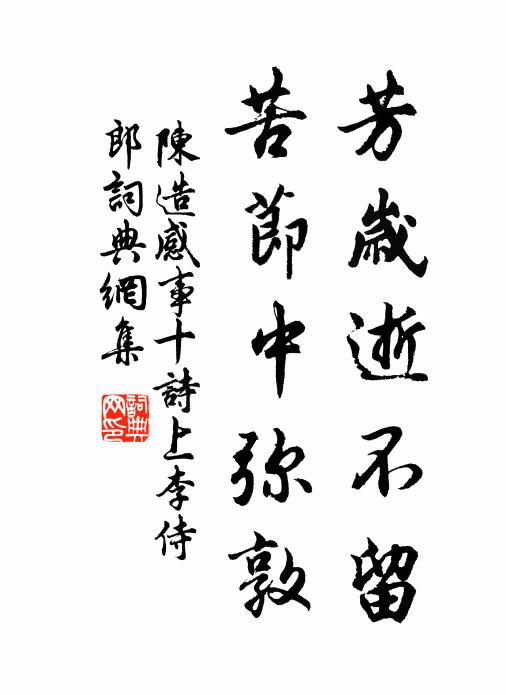 芳歲逝不留
苦節中弥敦
陳造感事十詩上李侍
郎詞典網集
詞典网印